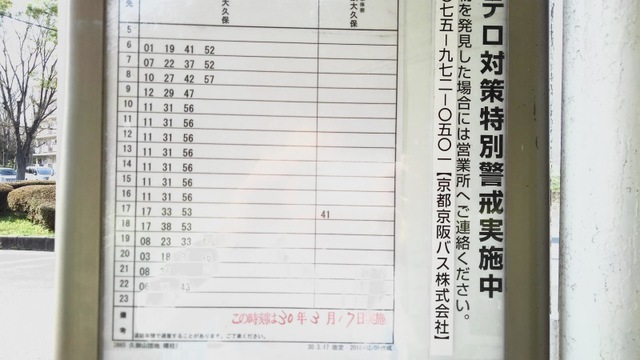 先
大久保
大久保
5
6 01 19 41 52
7 07 22 37 52
8 10 27 42 57
9 12 29 47
10 11 31 56
11 11 31 56
12 11 31 56
13 11 31 56
14 11 31 56
15 11 31 56
16 11 31 56
17 17 33 53 41
18 17 38 53
19 08 23 33
20 03 18
21 08
22 43
23
備考
この時刻は30年3月17日実施
道路事情で遅延することがあります。ご了承ください。
久御山団地
30.3.17 改定
テロ対策特別警戒実施中
を発見した場合には営業所へご連絡ください。
七五ー九七二ー〇五〇一【京都京阪バス株式会社】